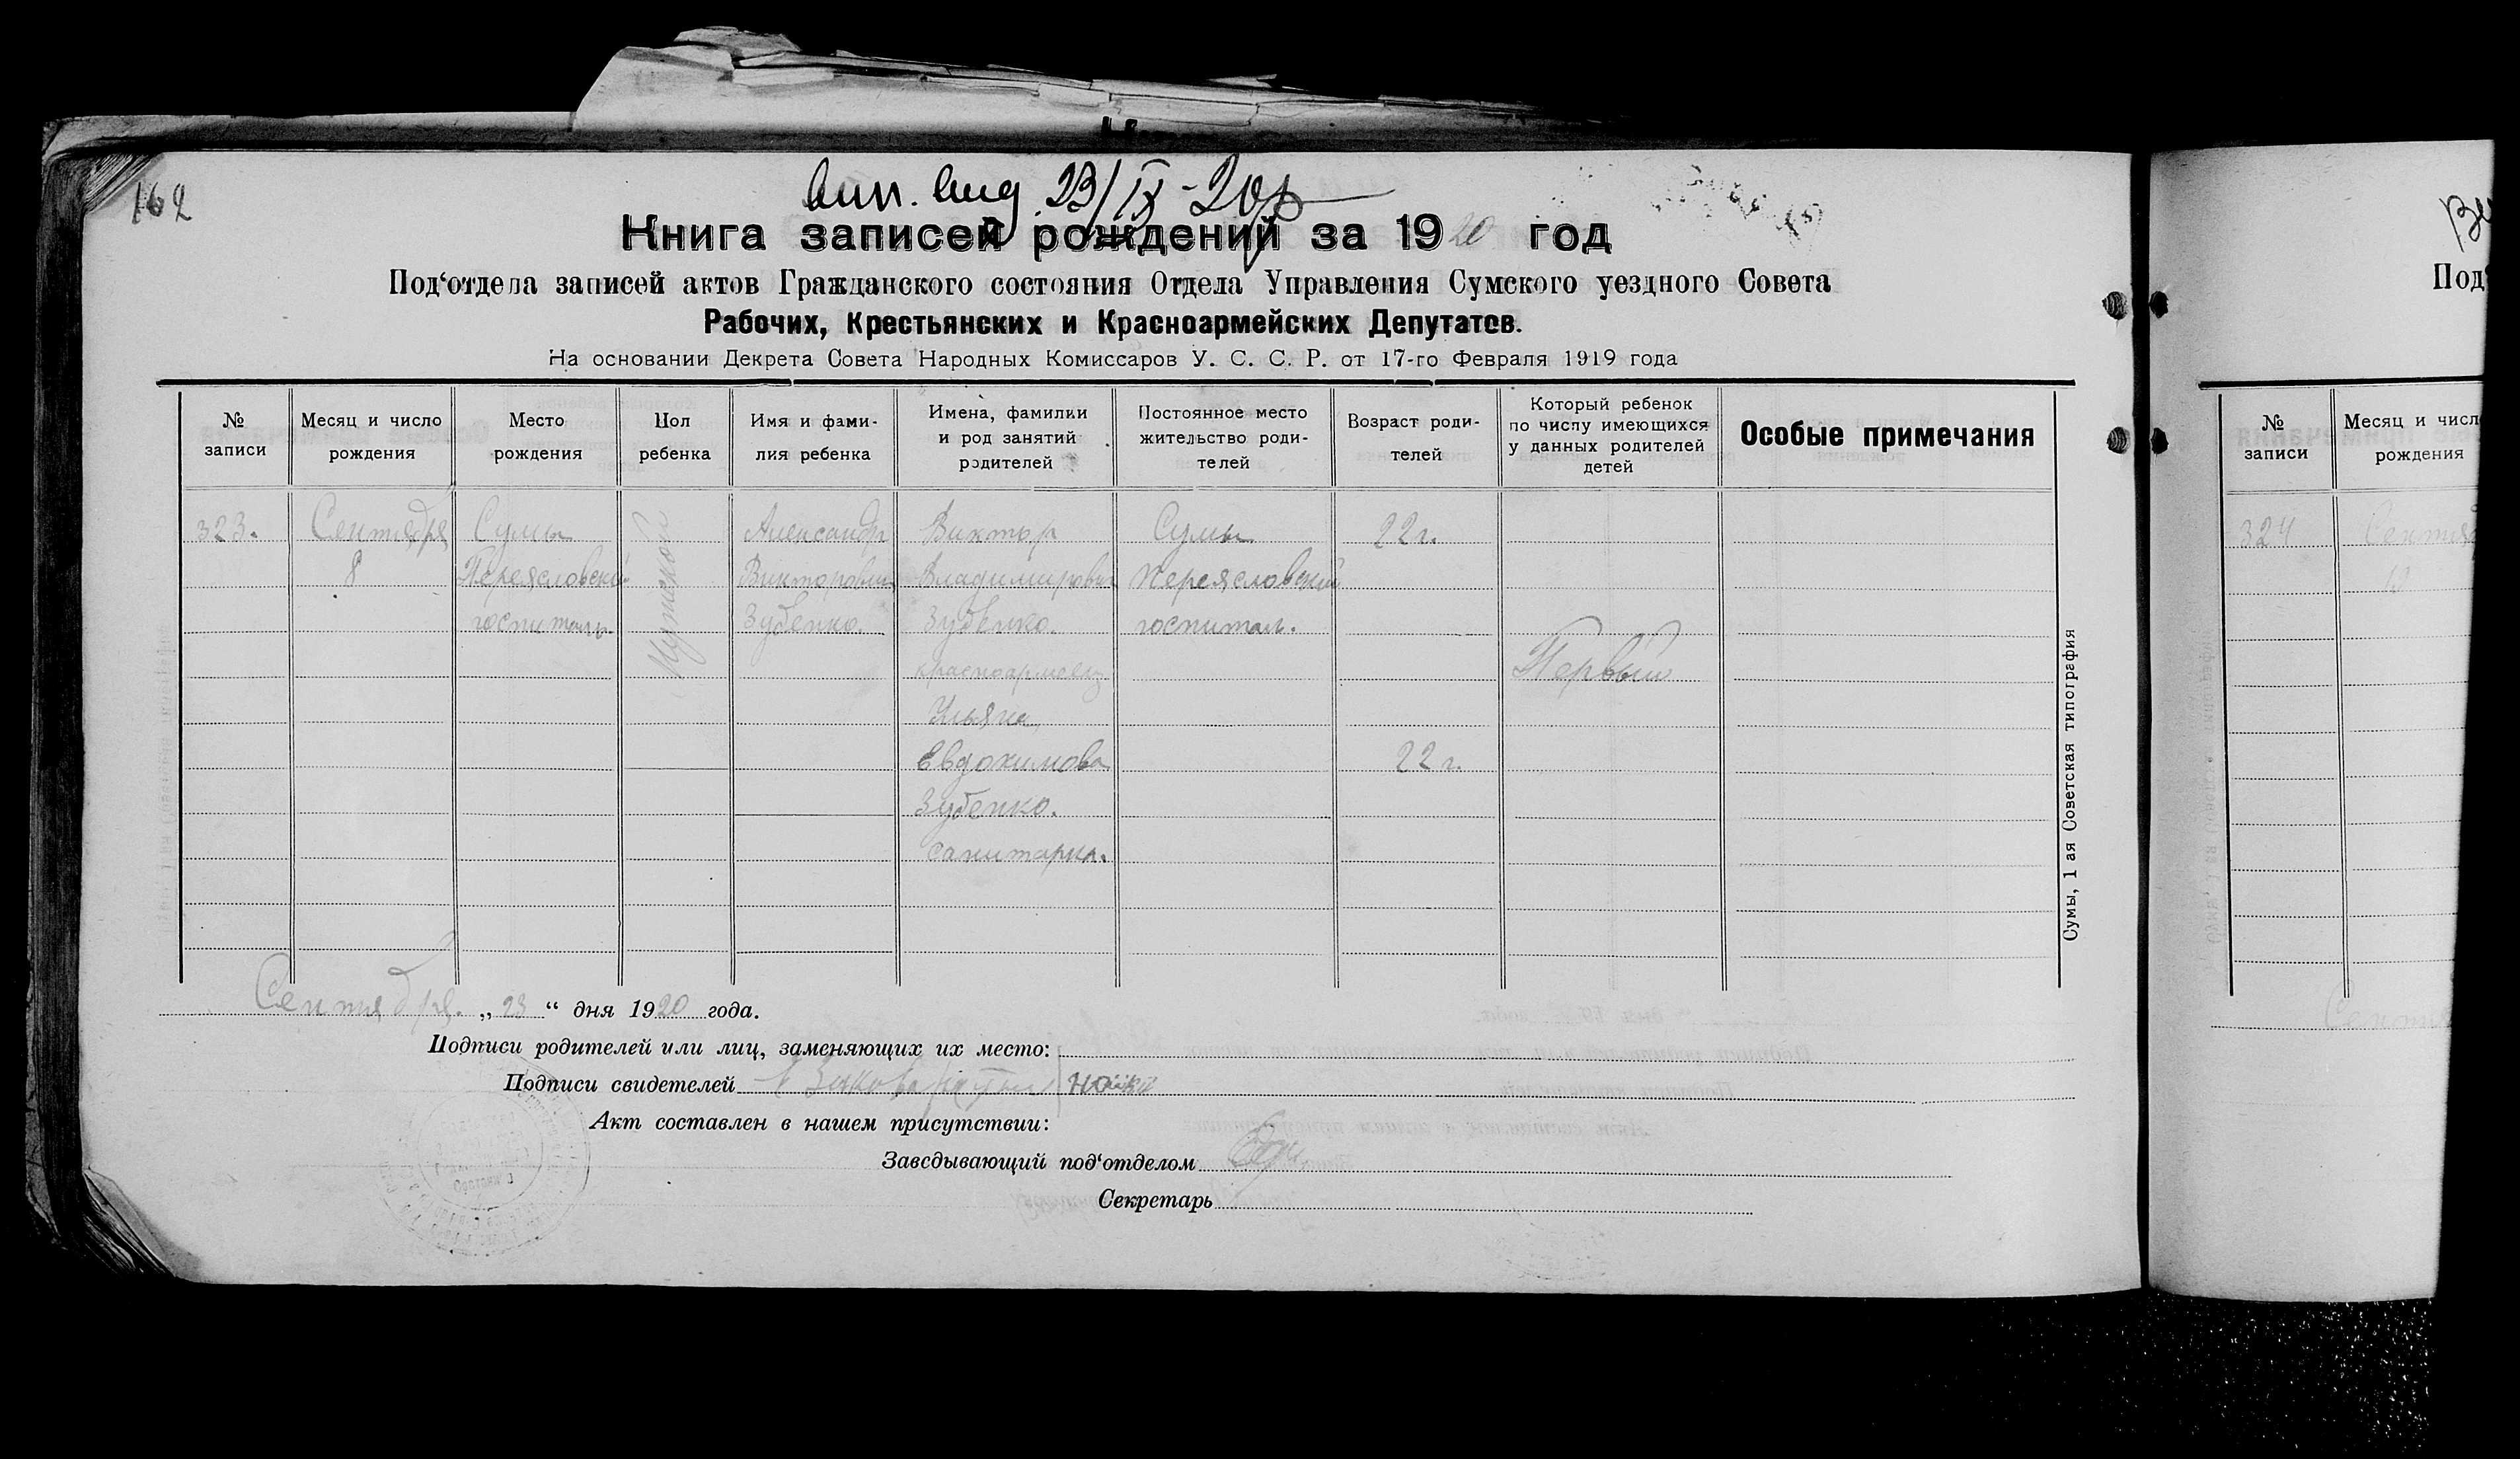 162
вып. вид. 23/IX-20 р
Книга записей рождений за 1920 год
Под‘отдела записей актов Гражданского состояния Отдела Управления Сумского уездного Совета
Рабочих, Крестьянских и Красноармейских Депутатов.
На основании Декрета Совета Народных Комиссаров У. С. С. Р. от 17-го Февраля 1919 года
№ записи
Месяц и число рождения
Место рождения
Пол ребенка
Имя и фами-
лия ребенка
Имена, фамилии
и род занятий
родителей
Постоянное место
жительство роди-
телей
Возраст роди-
телей
Который ребенок
по числу имеющихся
у данных родителей
детей
Особые примечания
323.
Сентября
8
Сумы
Переясловский
госпиталь.
Мужской
Александр
Викторович
Зубенко.
Виктор
Владимирович
Зубенко.
красноармеец
Ульяна
Евдокимова
Зубенко.
санитарка.
Сумы
Переясловский
госпитал.
22 г.
22 г.
Первый
Сентября. „23“ дня 1920 года.
Подписи родителей или лиц, заменяющих их место:
Подписи свидетелей
Акт составлен в нашем присутствии:
Заведывающий под‘отделом
Секретарь
Сумы, 1 ая Советская типография
Под
№ записи
Месяц и число
рождения
324
Сентяб
10